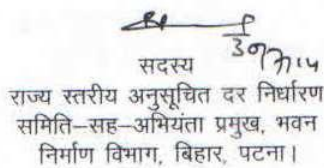 सदस्य
राज्य स्तरीय अनुसूचित दर निर्धारण
समिति–सह–अभियंता प्रमुख, भवन
निर्माण विभाग, बिहार, पटना।